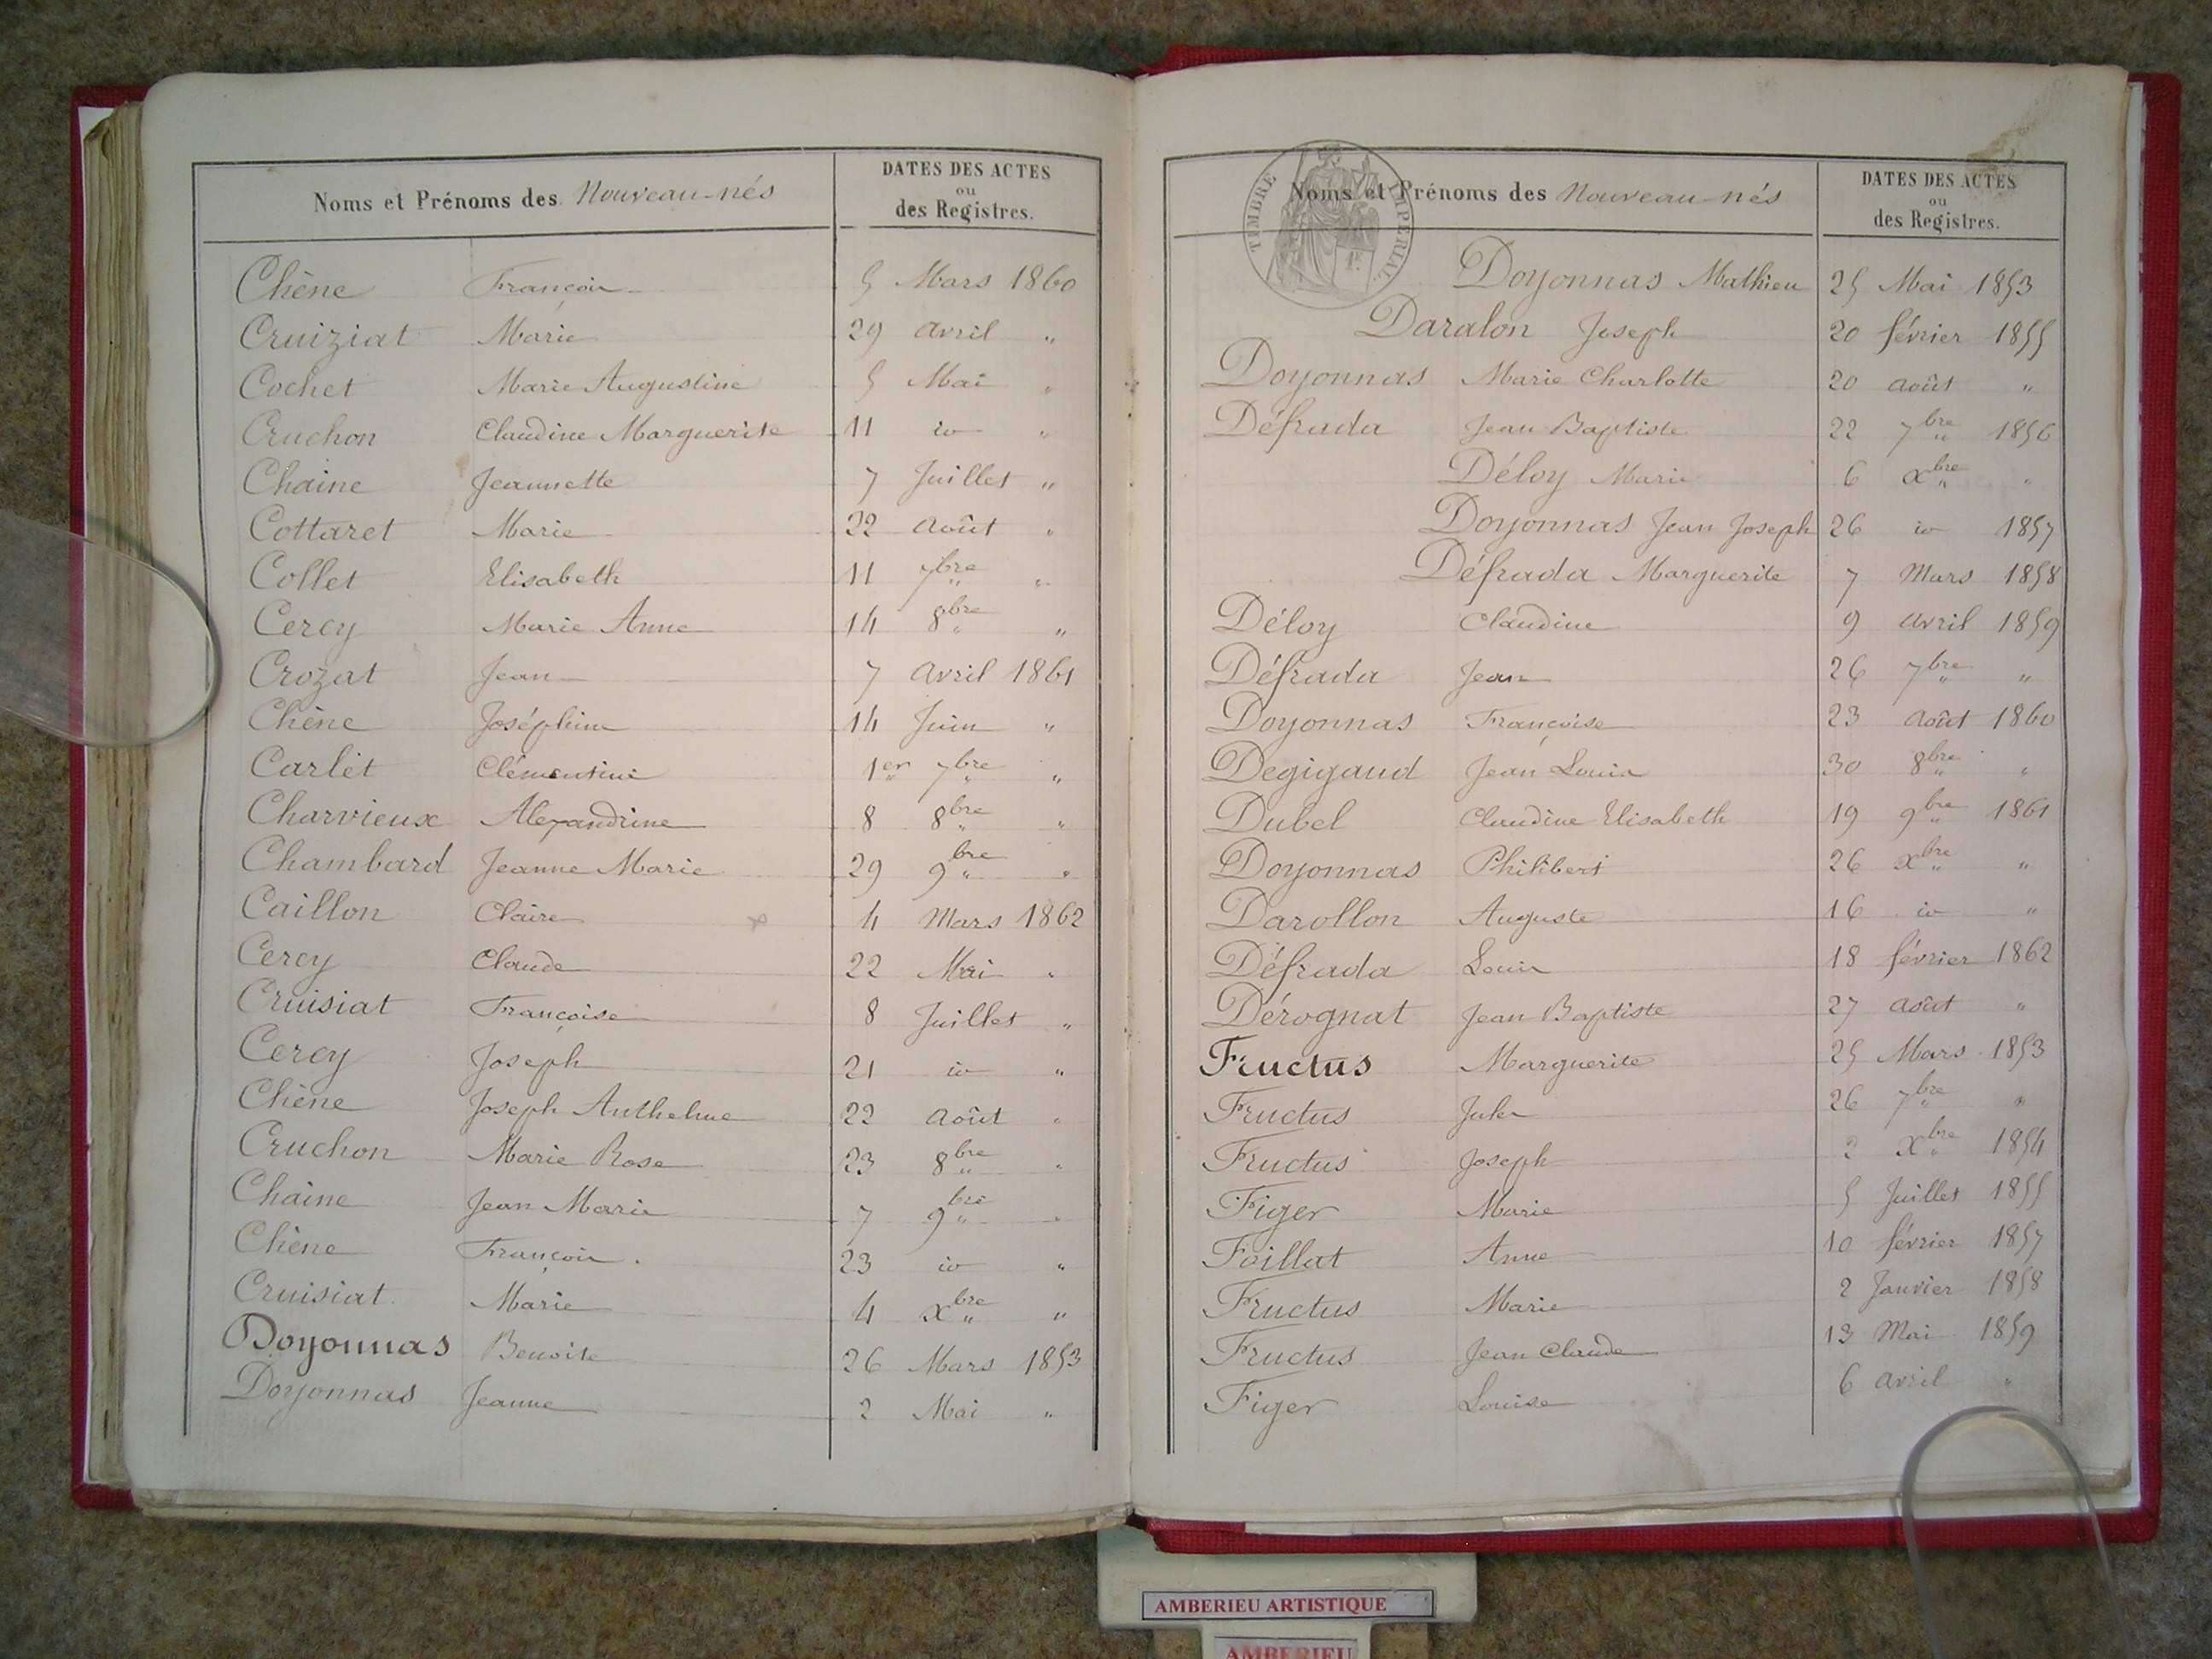 Noms et Prénoms des Nouveau-nés
DATES DES ACTES
ou
des Registres.
Chêne François 5 Mars 1860
Cruiziat Marie 29 avril "
Cochet Marie Augustine 5 Mai "
Cruchon Claudine Marguerite 11 io "
Chaine Jeannette 7 Juillet "
Cottaret Marie 22 août "
Collet Elisabeth 11 7bre "
Cercy Marie Anne 14 8bre "
Crozat Jean 7 avril 1861
Chêne Joséphine 14 Juin "
Carlet Clémentine 1er 7bre "
Charvieux Alexandrine 8 8bre "
Chambard Jeanne Marie 29 9bre "
Caillon Claire 4 Mars 1862
Cercy Claude 22 Mai "
Cruisiat Françoise 8 Juillet "
Cercy Joseph 21 io "
Chêne Joseph Anthelme 22 août "
Cruchon Marie Rose 23 8bre "
Chaine Jean Marie 7 9bre "
Chêne François 23 io "
Cruisiat Marie 4 xbre "
Doyonnas Benoite 26 Mars 1853
Doyonnas Jeanne 2 Mai "
TIMBRE IMPERIAL
Noms et Prénoms des Nouveau-nés
DATES DES ACTES
ou
des Registres.
Doyonnas Mathieu 25 Mai 1853
Daralon Joseph 20 février 1855
Doyonnas Marie Charlotte 20 août "
Défrada Jean Baptiste 22 7bre 1856
Déloy Marie 6 xbre "
Doyonnas Jean Joseph 26 io 1857
Défrada Marguerite 7 Mars 1858
Déloy Claudine 9 avril 1859
Défrada Jean 26 7bre "
Doyonnas Françoise 23 août 1860
Degigaud Jean Louis 30 8bre "
Dubel Claudine Elisabeth 19 9bre 1861
Doyonnas Philibert 26 xbre "
Darollon Auguste 16 io "
Défrada Louis 18 février 1862
Dérognat Jean Baptiste 27 août "
Fructus Marguerite 25 Mars 1853
Fructus Jules 26 7bre "
Fructus Joseph 2 xbre 1854
Figer Marie 5 Juillet 1855
Foillat Anne 10 février 1857
Fructus Marie 2 Janvier 1858
Fructus Jean Claude 13 Mai 1859
Figer Louise 6 avril "
AMBERIEU ARTISTIQUE
AMBERIEU